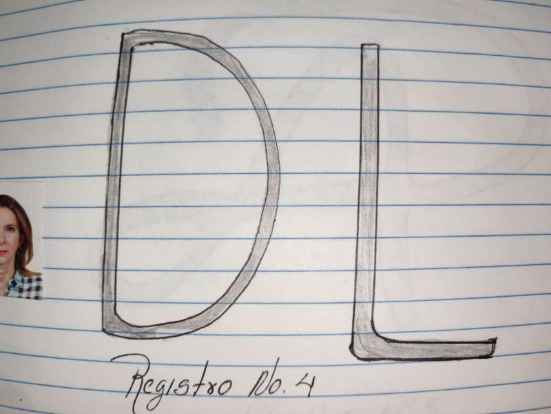 DL
Registro No. 4